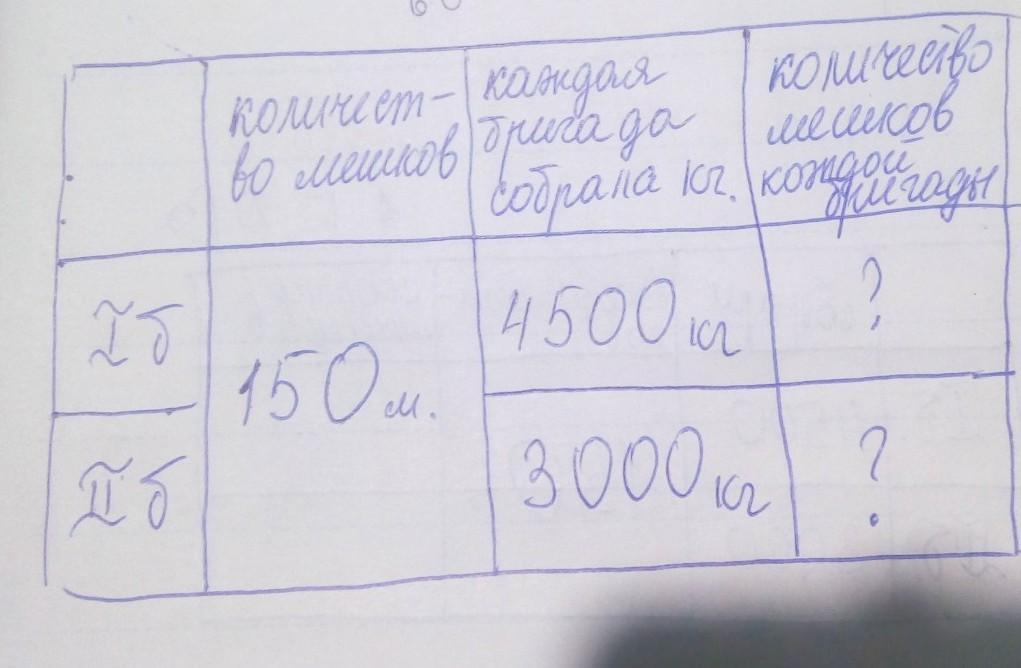 количест-
во мешков
каждая
бригада
собрала кг.
количество
мешков
каждой
бригады
I б
150 м.
4500 кг
?
II б
3000 кг
?